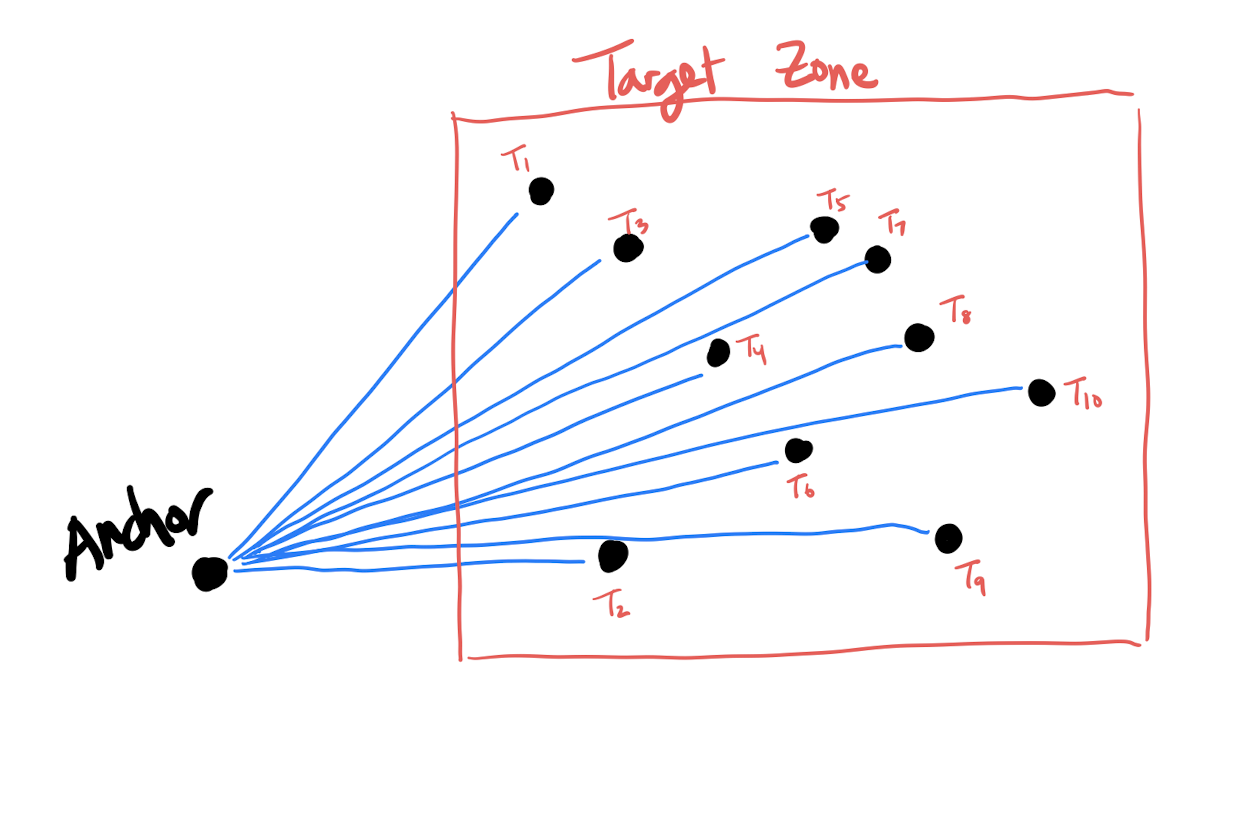 Target Zone
T1
T3
T5
T7
T8
T4
T10
T6
Anchor
T9
T2